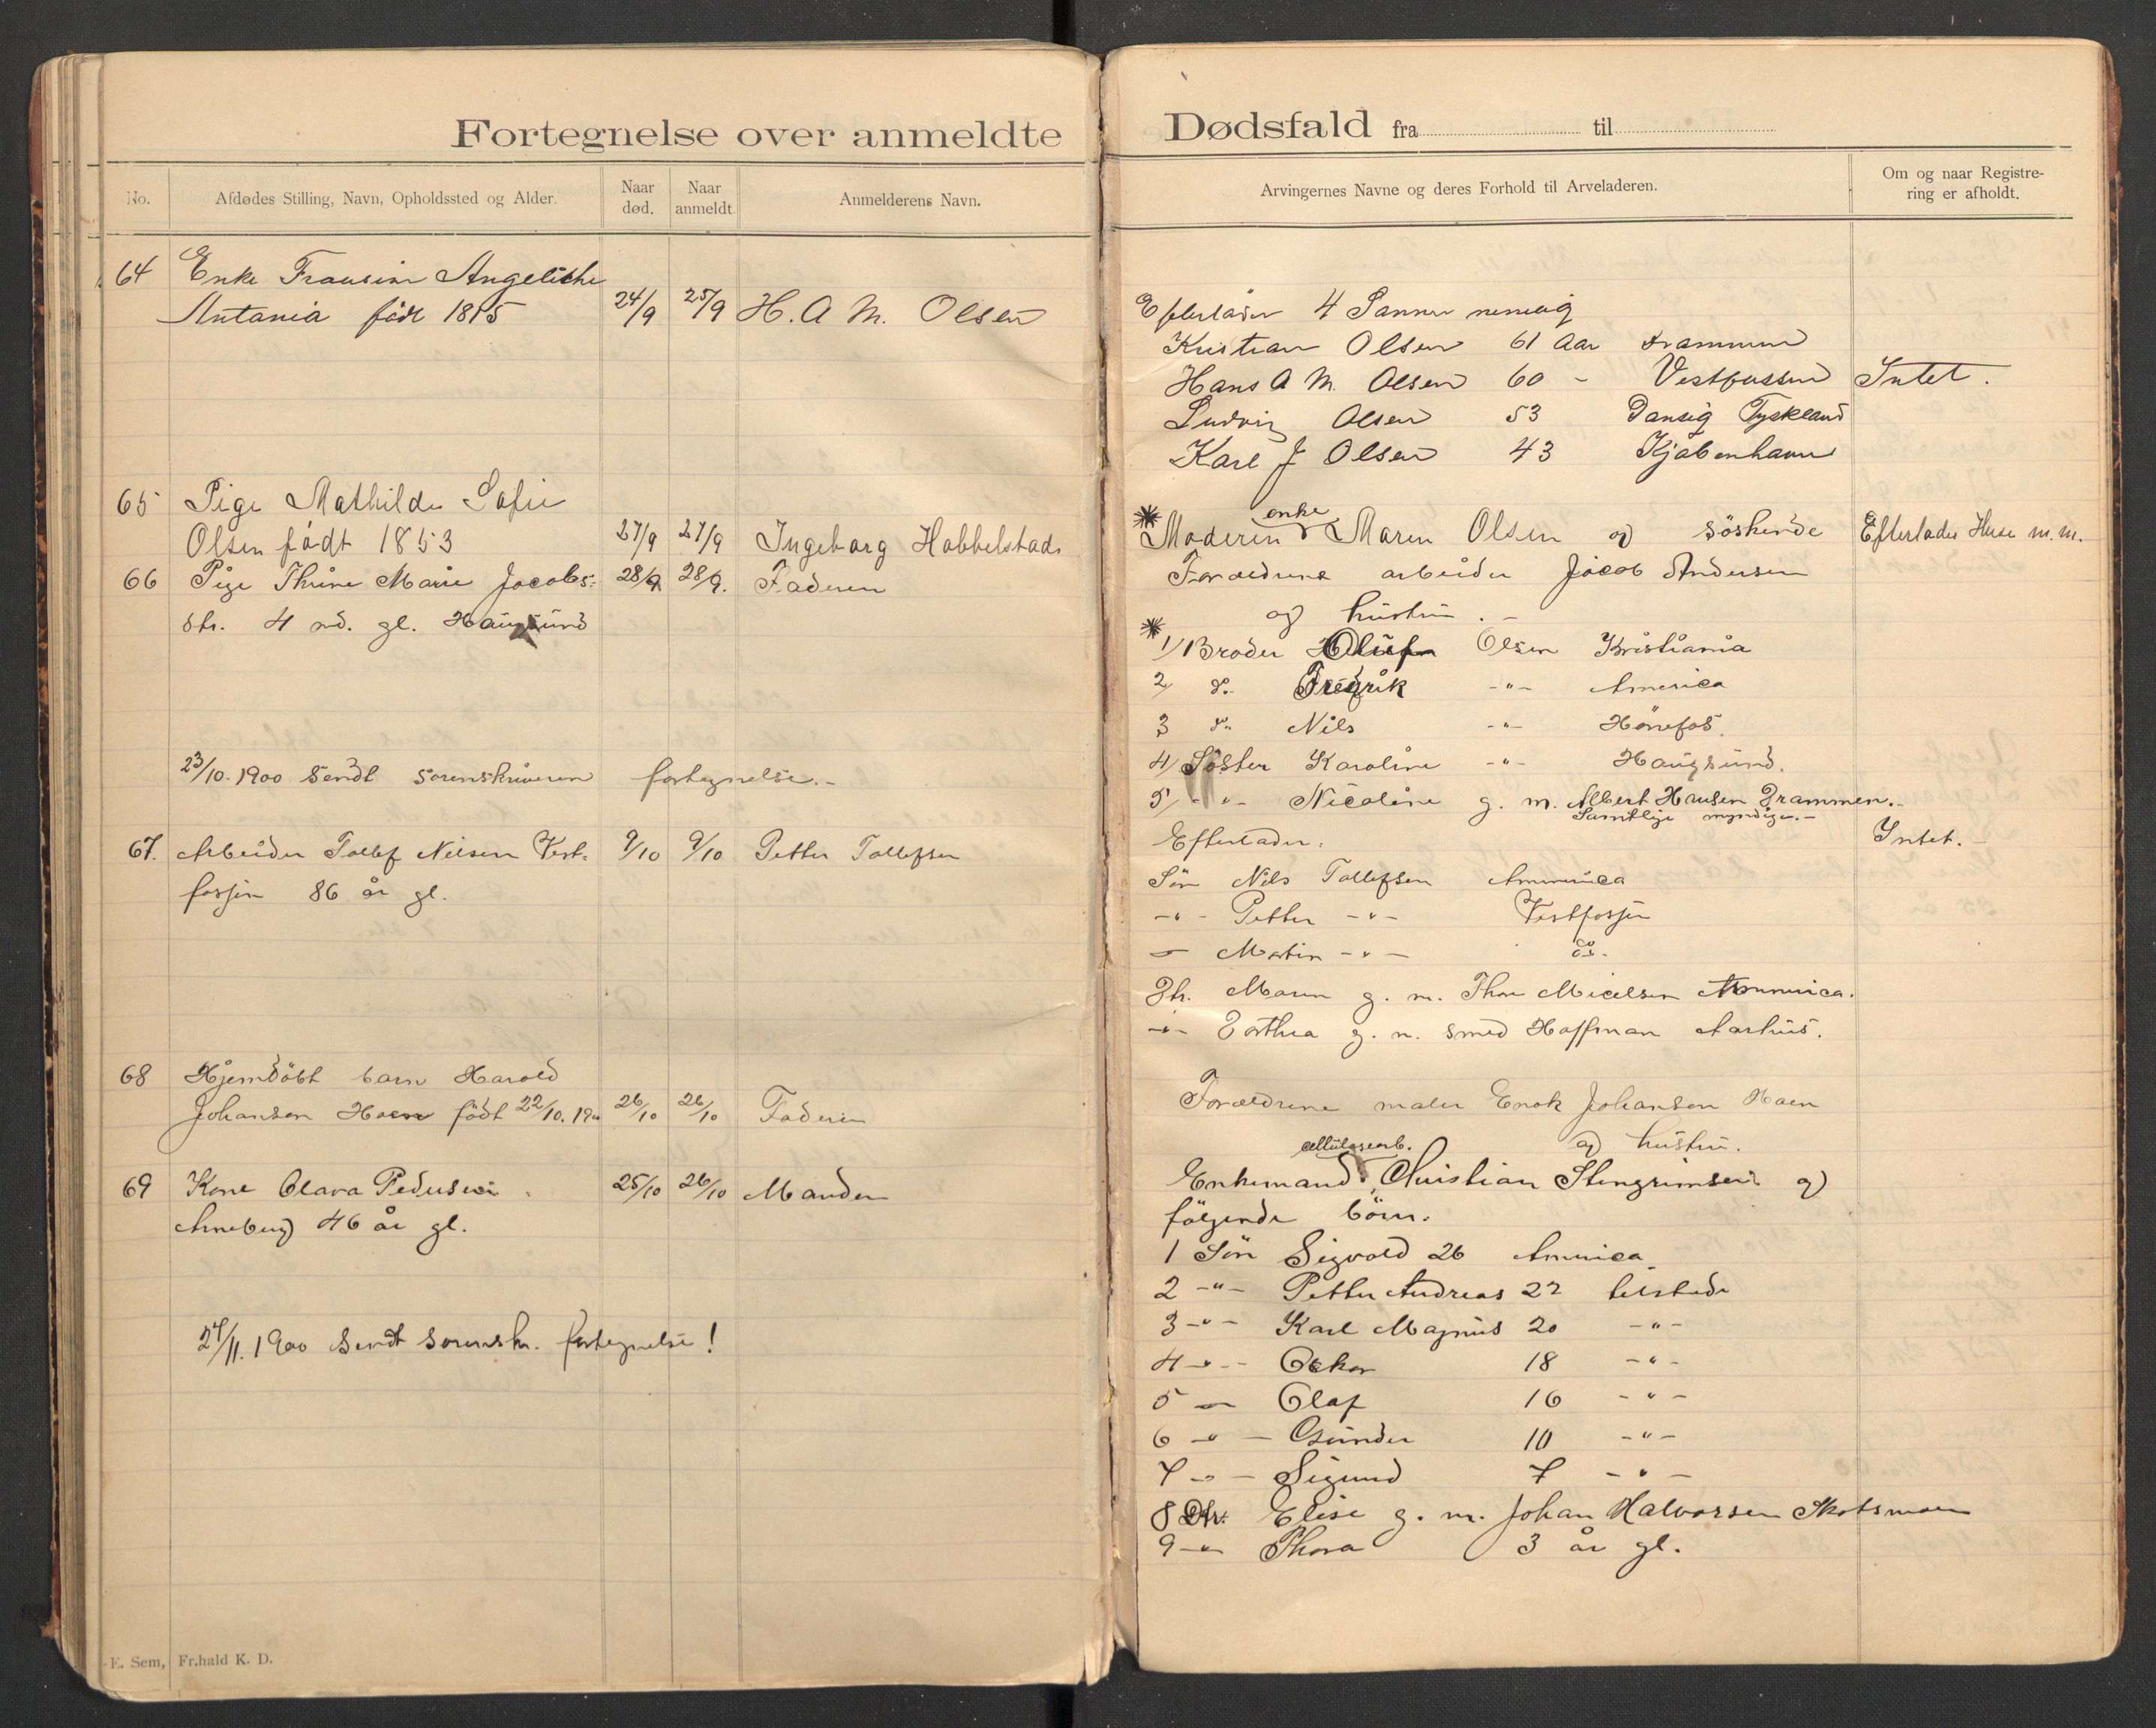 Fortegnelse over anmeldte Dødsfald fra til
No. Afdødes Stilling, Navn, Opholdssted og Alder. Naar død. Naar anmeldt. Anmelderens Navn.
64 Enke Fransine Angelische
Antania født 1815 24/9 25/9 H. A M. Olsen
65 Pige Mathilde Sofie
Olsen født 1853 27/9 27/9 Ingeborg Hobbelstad
66 Pige Thrine Marie Jacobs-
dtr. 4 md. gl. Haugsund 28/9 28/9. Faderen
23/10. 1900 Sendt sorenskriveren fortegnelse.-
67. Arbeider Tollef Nilsen Vest- 9/10 9/10 Petter Tollefsen
fossen 86 år gl.
68 Hjemdøbt barn Harald
Johansen Hoen født 22/10. 1900 26/10 26/10 Faderen
69 Kone Clara Pedersen 25/10 26/10 Manden
Arneberg 46 år gl.
24/11. 1900 Sendt sorenskr. fortegnelse!
E. Sem, Fr.hald K. D.
Arvingernes Navne og deres Forhold til Arveladeren. Om og naar Registrering er afholdt.
Efterlader 4 Sønner
Kristian Olsen 61 Aar Drammen
Hans A M. Olsen 60 - Vestfossen Intet.
Ludvig Olsen 53 Danzig Tyskland
Karl J Olsen 43 Kjøbenhavn
* enke
Moderen Maren Olsen og söskende Efterlader Huse m.m.
Forældrene arbeider Jacob Andersen
og hustru.-
*
1/ Broder Oluf Olsen Kristiania
2/ d. Fredrik -"- America
3 d. Nils -"- Hönefos.
4/ Söster Karoline -"- Haugsund.
5/ -"- Nicoline g. m. Albert Hansen Drammen.-
Samtlige myndige.-
Efterlader: Intet.-
Sön Nils Tollefsen Ammerica
-"- Petter -"- Vestfossen
- Martin -"- do.
Dtr. Maren g. m. Thor Micelsen Ammerica.
-"- Dorthea g. m. smed Hoffman Aarhus.
Forældrene maler Enok Johansen Hoen
og hustru.
cellulosearb.
Enkemand Christian Stengrimsen og
følgende börn:
1 Sön Sigvald 26 America
2 -"- Petter Andreas 22 tilstede
3 -"- Karl Magnus 20 -"-
4 -"- Oskar 18 -"-
5 - Olaf 16 -"-
6 -"- Gunder 10 -"-
7 -"- Sigurd 7 -"-
8 Dtr. Elise g. m. Johan Halvorsen Skotsmoen
9 -"- Thora 3 år gl.